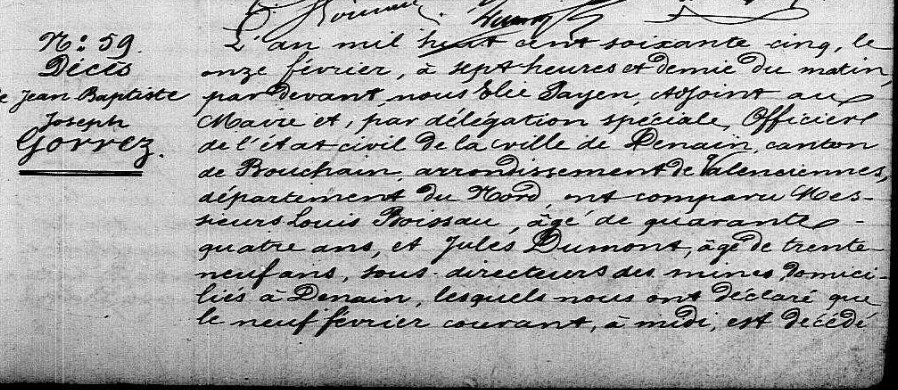 N.: 59.
Décès
de Jean Baptiste
Joseph
Gorrez.
L'an mil huit cent soixante cinq, le
onze février, à sept heures et demie du matin,
par devant nous Elie Payen, Adjoint au
Maire et, par délégation spéciale, Officier
de l'état civil de la ville de Denain, canton
de Bouchain, arrondissement de Valenciennes,
département du Nord, ont comparu Mes-
sieurs Louis Boissau, âgé de quarante-
quatre ans, et Jules Dumont, âgé de trente
neuf ans, sous-directeurs des mines, domici-
liés à Denain, lesquels nous ont déclaré que
le neuf février courant, à midi, est décédé